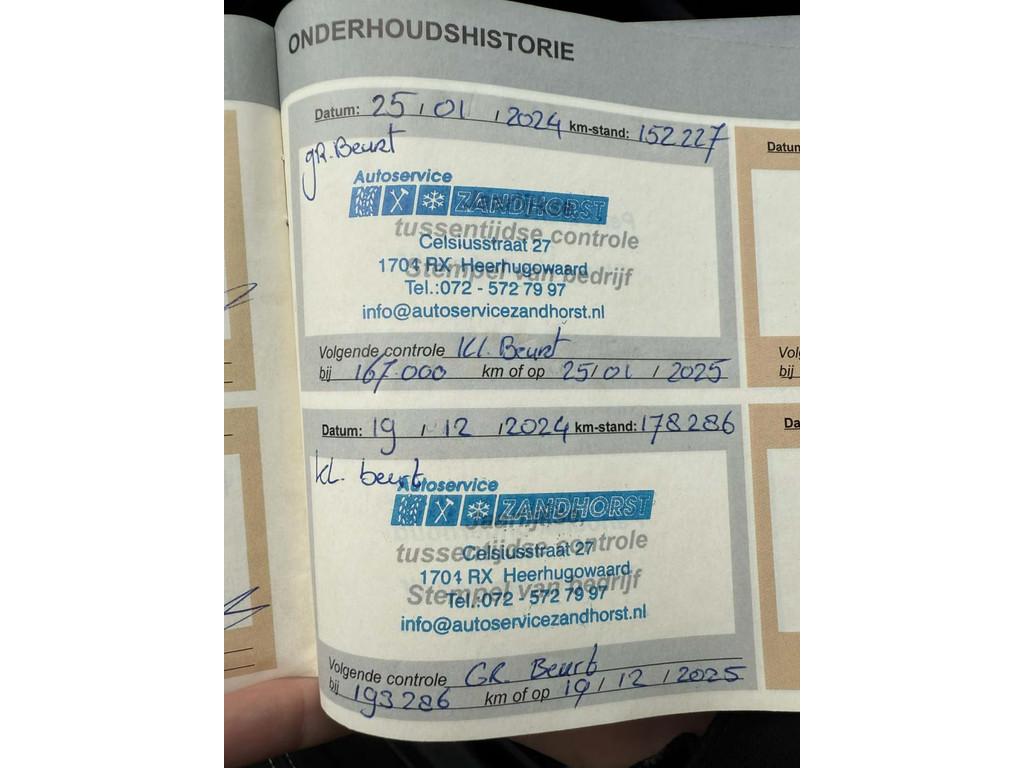 ONDERHOUDSHISTORIE
Datum: 25 / 01 / 2024 km-stand: 152227
gR. Beurt
Autoservice
ZANDHORST
tussentijdse controle
Celsiusstraat 27
1704 RX Heerhugowaard
Stempel van bedrijf
Tel.:072 - 572 79 97
info@autoservicezandhorst.nl
Volgende controle Kl. Beurt
bij 167.000 km of op 25/01 / 2025
Datum: 19 / 12 / 2024 km-stand: 178286
kl. beurt
Autoservice
ZANDHORST
Jaarlijkse/
tussentijdse controle
Celsiusstraat 27
1704 RX Heerhugowaard
Stempel van bedrijf
Tel.:072 - 572 79 97
info@autoservicezandhorst.nl
Volgende controle GR. Beurt
bij 193286 km of op 19 / 12 / 2025
Datum
Vol
bij
Da